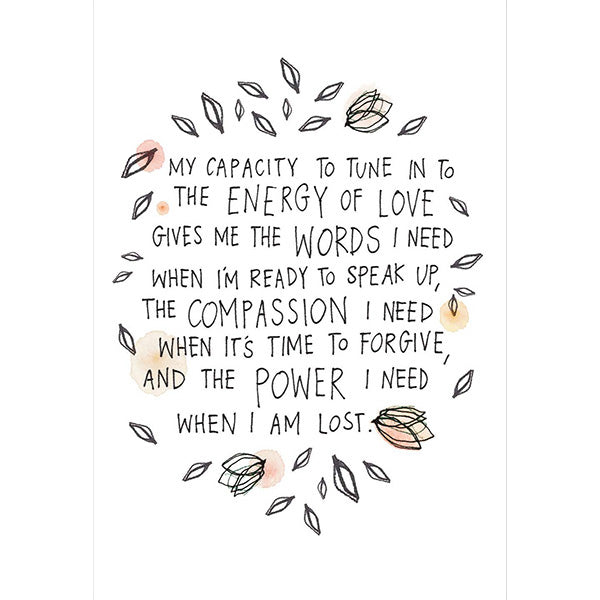 MY CAPACITY TO TUNE IN TO
THE ENERGY OF LOVE
GIVES ME THE WORDS I NEED
WHEN I'M READY TO SPEAK UP,
THE COMPASSION I NEED
WHEN IT'S TIME TO FORGIVE,
AND THE POWER I NEED
WHEN I AM LOST.